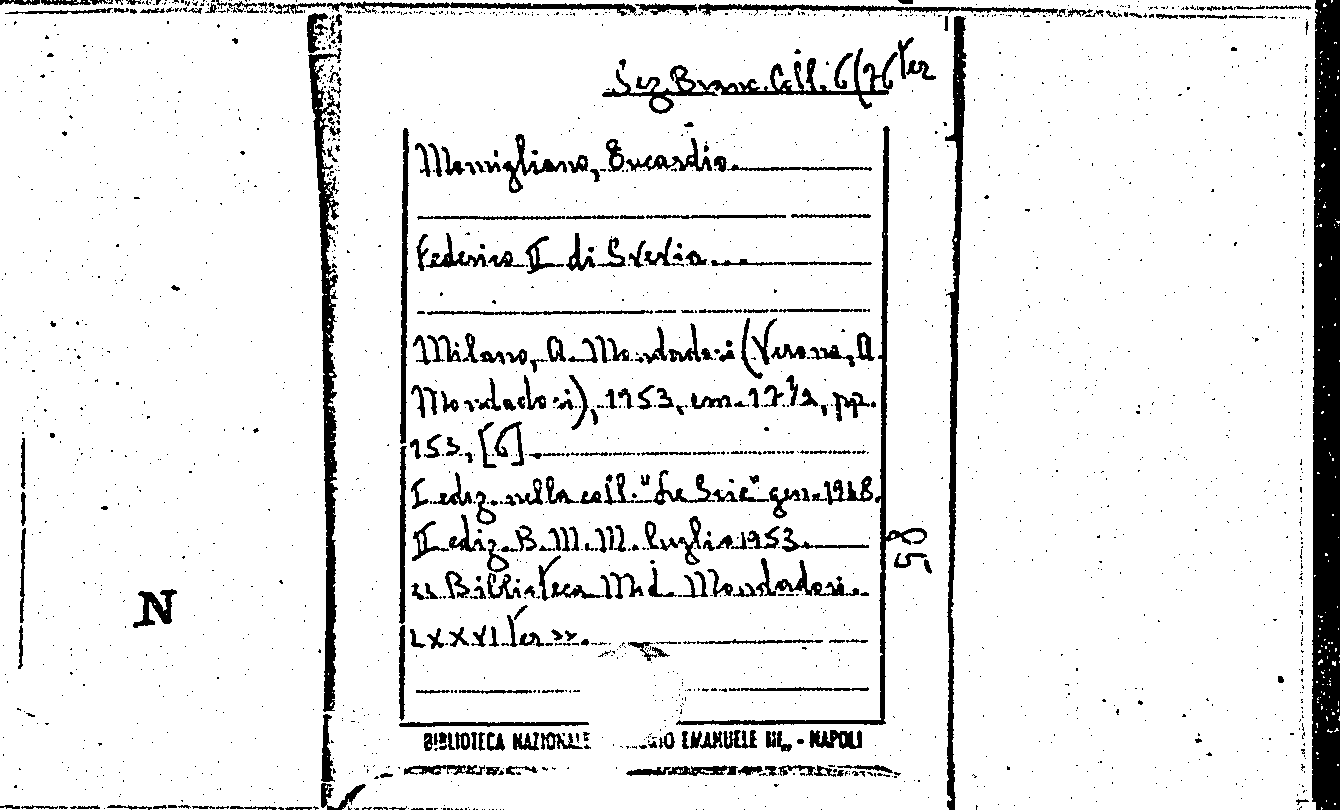 Sez. Branc. Coll. 6(76 ter
Momigliano, Eucardio.
Federico II di Svevia...
Milano, A. Mondadori (Verona, A.
Mondadori), 1953, cm. 17½, pp.
153, [6].
I ediz. nella coll. "Le Scie" gen. 1948.
II ediz. B. M. M. luglio 1953.
<< Biblioteca Mod. Mondadori.
LXXXVI ter >>.
85
N
BIBLIOTECA NAZIONALE EMANUELE III„ - NAPOLI